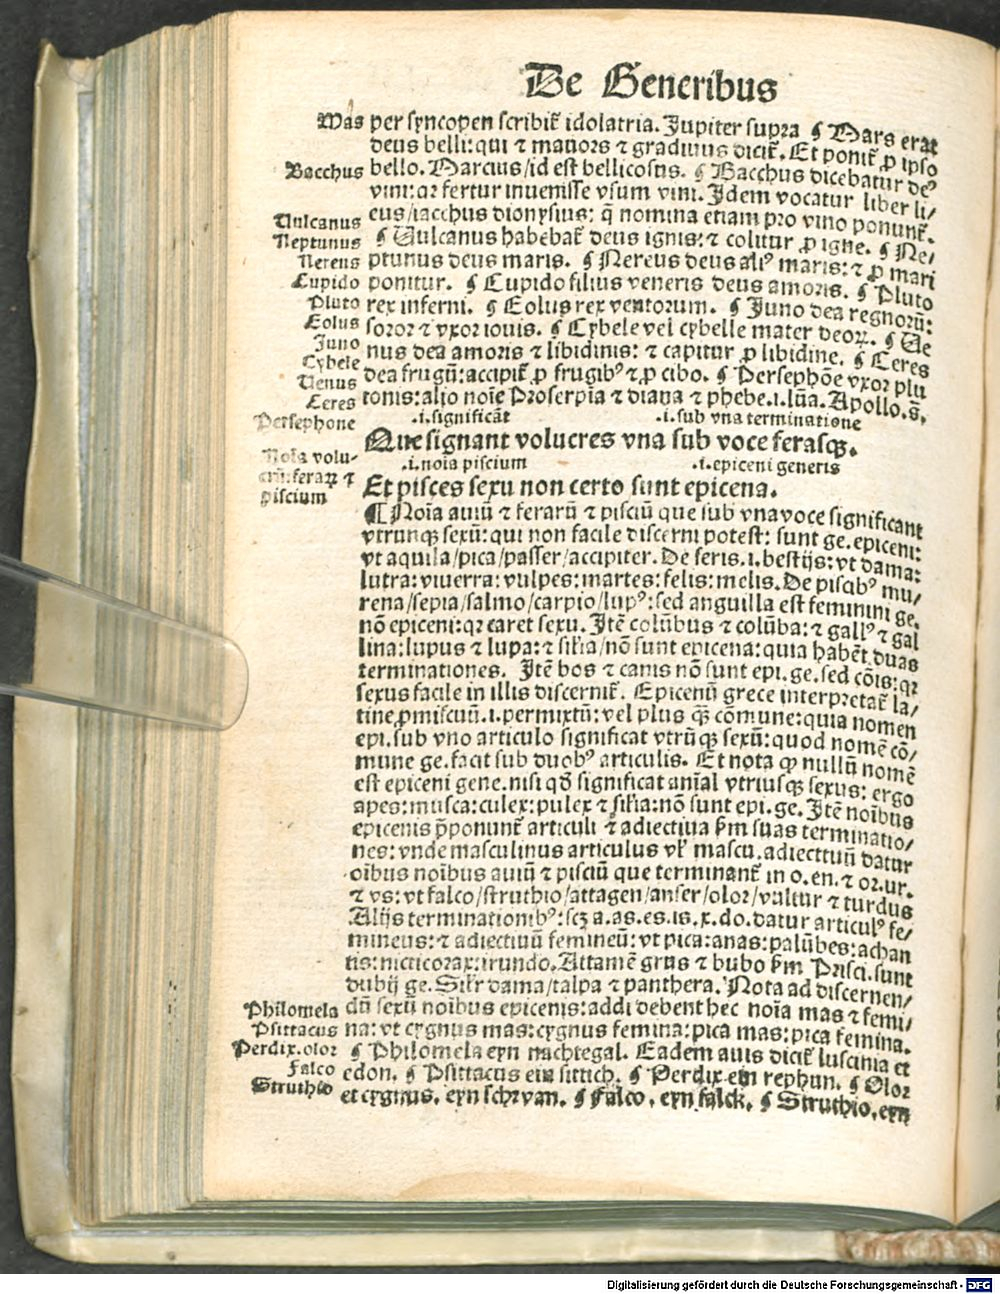 De Generibus
Mas per syncopen scribit̃ idolatria. Jupiter supra ¶ Mars erat
deus belli: qui ⁊ mauors ⁊ gradiuus dicit̃. Et ponit̃ ꝓ ipso
Bacchus bello. Marcius/id est bellicosus. ¶ Bacchus dicebatur deꝰ
vini: qr fertur inuenisse vsum vini. Idem vocatur liber li/
eus/iacchus dionysius: q̃ nomina etiam pro vino ponunt̃.
Vulcanus
¶ Vulcanus habebat̃ deus ignis: ⁊ colitur ꝓ igne. ¶ Ne/
Neptunus
ptunus deus maris. ¶ Nereus deus aliꝰ maris: ⁊ ꝓ mari
Nereus
ponitur. ¶ Cupido filius veneris deus amoris. ¶ Pluto
Cupido
rex inferni. ¶ Eolus rex ventorum. ¶ Juno dea regnorũ:
Pluto
soror ⁊ vxor iouis. ¶ Cybele vel cybelle mater deoꝝ. ¶ Ve
Eolus
nus dea amoris ⁊ libidinis: ⁊ capitur ꝓ libidine. ¶ Ceres
Juno
dea frugũ: accipit̃ ꝓ frugibꝰ ⁊ ꝓ cibo. ¶ Persephõe vxor plu
Cybele
tonis: alio noĩe Proserpĩa ⁊ diana ⁊ phebe .i. lũa. Apollo. s̃.
Venus
Ceres
Persephone
.i. significãt .i. sub vna terminatione
Que signant volucres vna sub voce ferasqꝫ.
Noĩa volu-
crũ: feraꝝ ⁊
piscium
.i. noĩa piscium .i. epiceni generis
Et pisces sexu non certo sunt epicena.
¶ Noĩa auiũ ⁊ ferarũ ⁊ pisciũ que sub vna voce significant
vtrunqꝫ sexũ: qui non facile discerni potest: sunt ge. epiceni:
vt aquila/pica/passer/accipiter. De feris .i. bestijs: vt dama:
lutra: viuerra: vulpes: martes: felis: melis. De piscibꝰ mu/
rena/sepia/salmo/carpio/lupꝰ: sed anguilla est feminini ge.
nõ epiceni: qr caret sexu. Itẽ colũbus ⁊ colũba: ⁊ gallꝰ ⁊ gal
lina: lupus ⁊ lupa: ⁊ sil̃ia/nõ sunt epicena: quia habẽt duas
terminationes. Itẽ bos ⁊ canis nõ sunt epi. ge. sed cõis: qr
sexus facile in illis discernit̃. Epicenũ grece interpretat̃ la/
tine ꝓmiscuũ .i. permixtũ: vel plus qꝫ cõmune: quia nomen
epi. sub vno articulo significat vtrũqꝫ sexũ: quod nomẽ cõ/
mune ge. facit sub duobꝰ articulis. Et nota ꝙ nullũ nomẽ
est epiceni gene. nisi qď significat aniãl vtriusqꝫ sexus: ergo
apes: musca: culex: pulex ⁊ sil̃ia: nõ sunt epi. ge. Itẽ noĩbus
epicenis p̃ponunt̃ articuli ⁊ adiectiua ẜm suas terminatio/
nes: vnde masculinus articulus vl̃ mascu. adiectiuũ datur
oĩbus noĩbus auiũ ⁊ pisciũ que terminant̃ in o. en. ⁊ or. ur.
⁊ vs: vt falco/struthio/attagen/anser/olor/vultur ⁊ turdus
Alijs terminationibꝰ: scꝫ a. as. es. is. x. do. datur articulꝰ fe/
mineus: ⁊ adiectiuũ femineũ: vt pica: anas: palũbes: achan
tis: nicticorax: irundo. Attamẽ grus ⁊ bubo ẜm Prisci. sunt
dubij ge. Sil̃r dama/talpa ⁊ panthera. Nota ad discernen/
dũ sexũ noĩbus epicenis: addi debent hec noĩa mas ⁊ femi/
Philomela
na: vt cygnus mas: cygnus femina: pica mas: pica femina.
Psittacus
¶ Philomela eyn nachtegal. Eadem auis dicit̃ luscinia et
Perdix. olor
edon. ¶ Psittacus ein sittich. ¶ Perdix ein rephun. ¶ Olor
Falco
Struthio
et cygnus. eyn schwan. ¶ Falco. eyn falck. ¶ Struthio. eyn
Digitalisierung gefördert durch die Deutsche Forschungsgemeinschaft - DFG